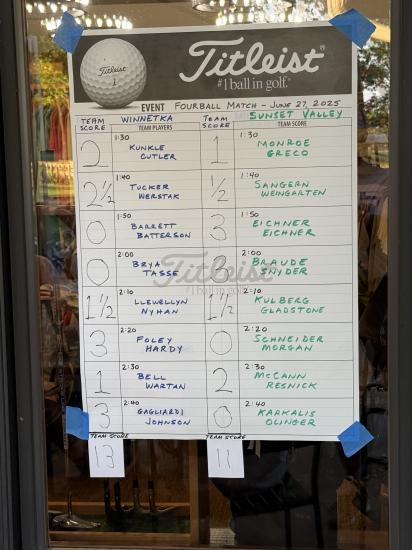 Titleist
1
Titleist
#1 ball in golf.
EVENT FOURBALL MATCH - JUNE 27, 2025
TEAM SCORE WINNETKA TEAM PLAYERS TEAM SCORE SUNSET VALLEY TEAM SCORE
1:30 1:30
2 KUNKLE 1 MONROE
CUTLER GRECO
1:40 1:40
2 1/2 TUCKER 1/2 SANGERN
WERSTAK WEINGARTEN
1:50 1:50
0 BARRETT 3 EICHNER
BATTERSON EICHNER
2:00 2:00
0 BRYA 3 BRAUDE
TASSE SNYDER
Titleist
#1 ball in golf.
2:10 2:10
1 1/2 LLEWELLYN 1 1/2 KULBERG
NYHAN GLADSTONE
2:20 2:20
3 FOLEY 0 SCHNEIDER
HARDY MORGAN
2:30 2:30
1 BELL 2 McCANN
WARTAN RESNICK
2:40 2:40
3 GAGLIARDI 0 KARKALIS
JOHNSON OLINGER
TEAM SCORE TEAM SCORE
13 11